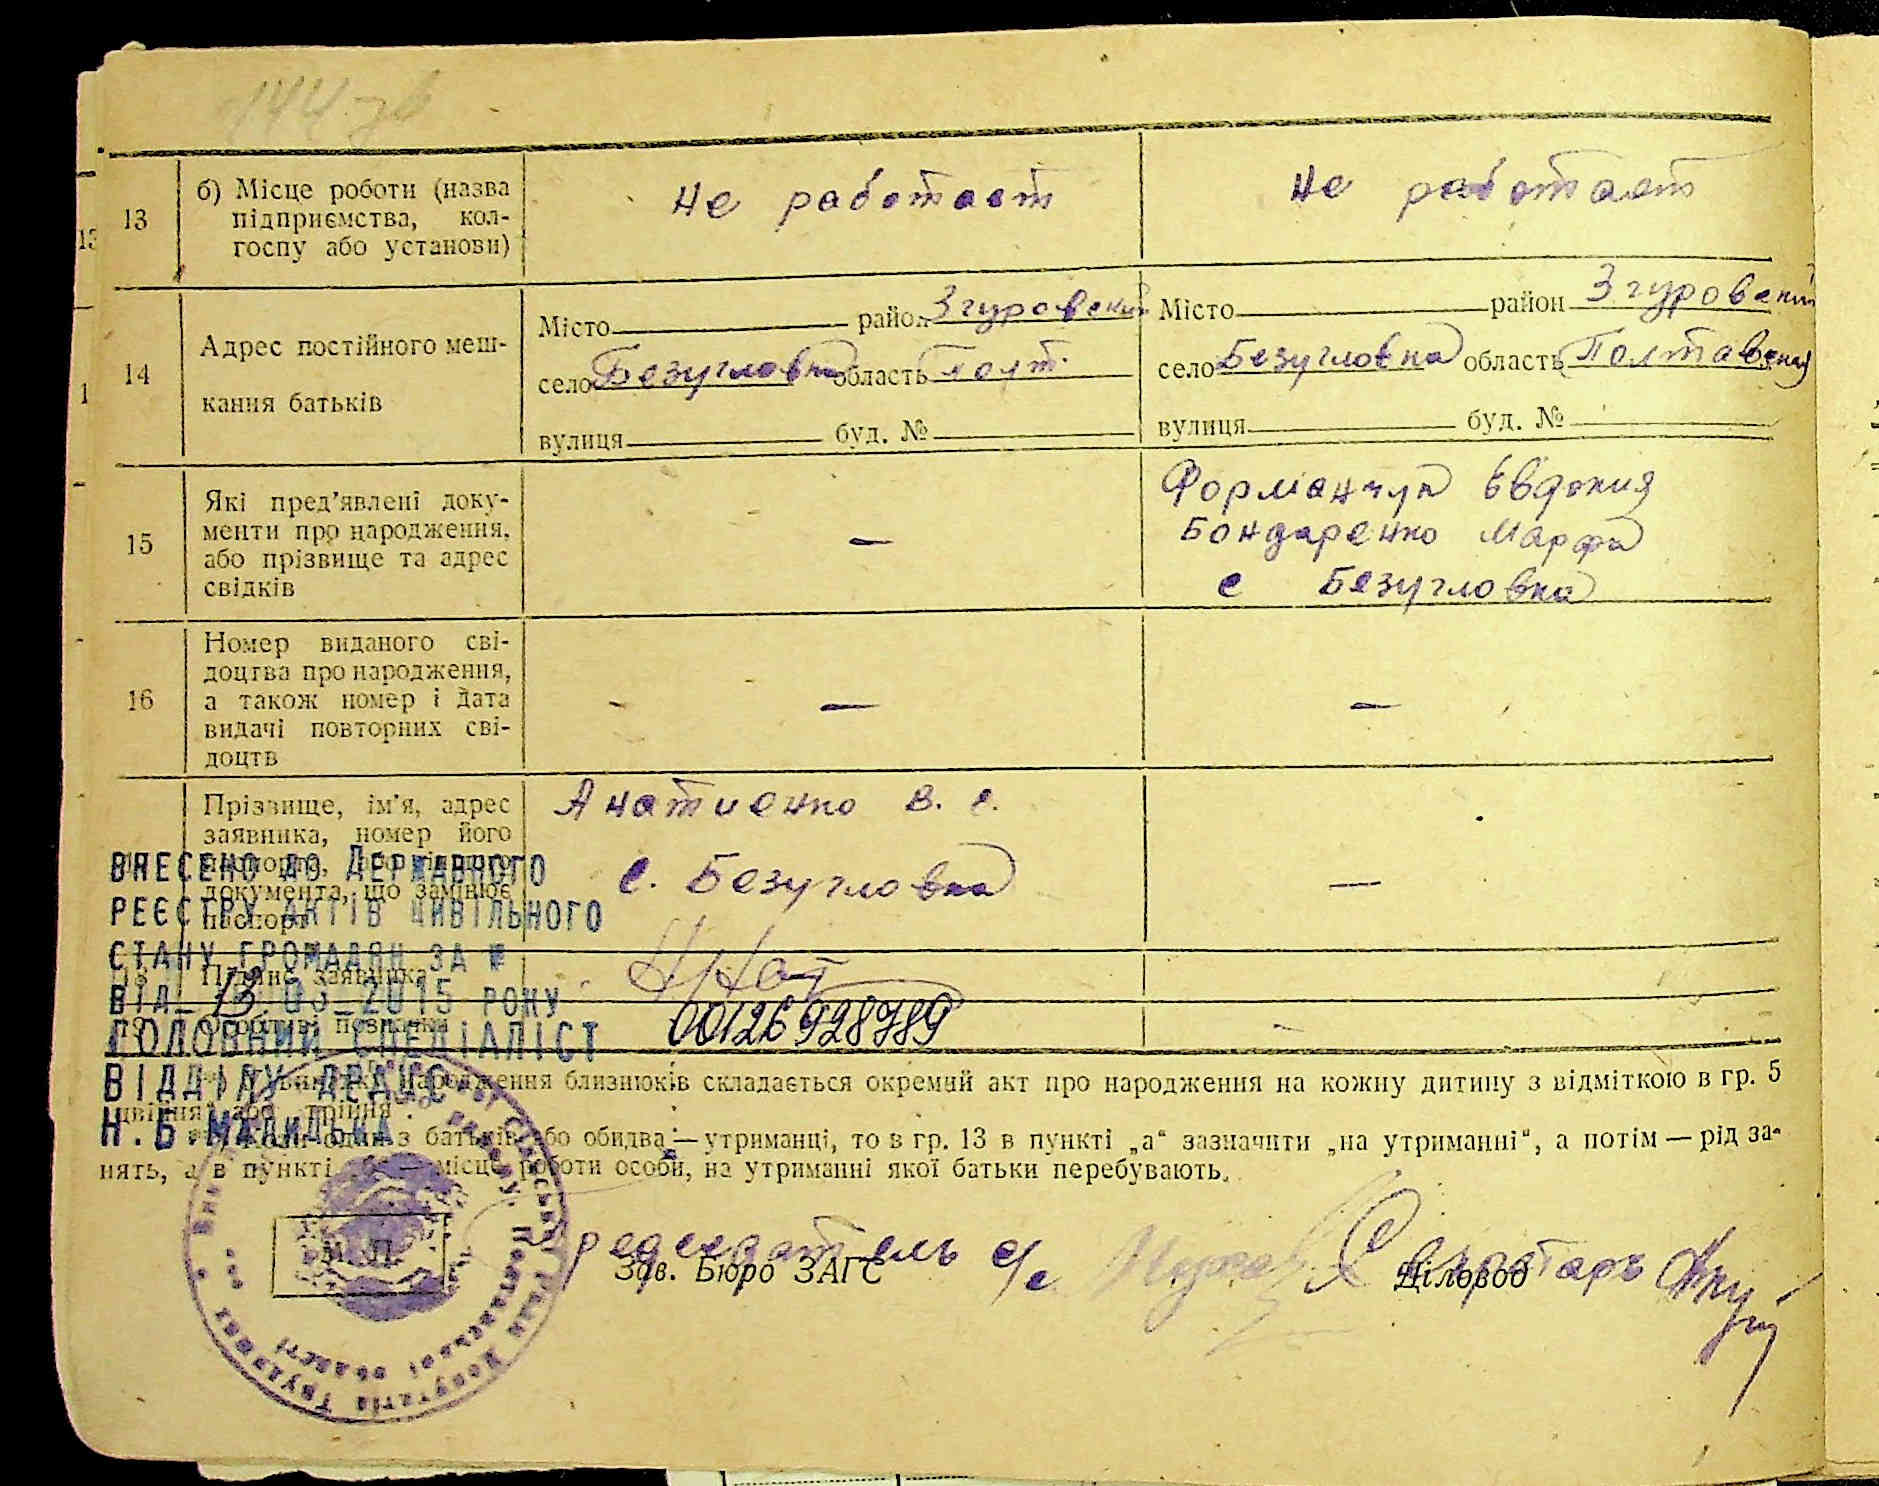 13
б) Місце роботи (назва
підприємства, кол-
госпу або установи)
не работает
не работает
14
Адрес постійного меш-
кання батьків
Місто район Згуровский
село Безугловка область Полт.
вулиця буд. №
Місто район Згуровский
село Безугловка область Полтавская
вулиця буд. №
15
Які пред'явлені доку-
менти про народження,
або прізвище та адрес
свідків
—
Форманчук Евдокия
Бондаренко Марфа
с Безугловка
16
Номер виданого сві-
доцтва про народження,
а також номер і дата
видачі повторних сві-
доцтв
—
—
Прізвище, ім'я, адрес
заявника, номер його
паспорта,
документа, що замінює
паспорт
Анатиенко В. С.
с. Безугловка
—
18 Підпис заявника
19 Особливі позначки
00126928789
ВНЕСЕНО ДО ДЕРЖАВНОГО
РЕЄСТРУ АКТІВ ЦИВІЛЬНОГО
СТАНУ ГРОМАДЯН ЗА №
ВІД 13 03 2015 РОКУ
ГОЛОВНИЙ СПЕЦІАЛІСТ
ВІДДІЛУ ДРАЦС
Н.Б.МАЛИДЬКА
народження близнюків складається окремий акт про народження на кожну дитину з відміткою в гр. 5
„двійня“ або „трійня“.
один з батьків або обидва — утриманці, то в гр. 13 в пункті „а“ зазначити „на утриманні“, а потім — рід за-
нять, а в пункті „б“ — місце роботи особи, на утриманні якої батьки перебувають.
М. П.
Председатель с/с
Зав. Бюро ЗАГС
Секретарь
Діловод
Сільської Ради Депутатів Трудящих
району, Полтавської області